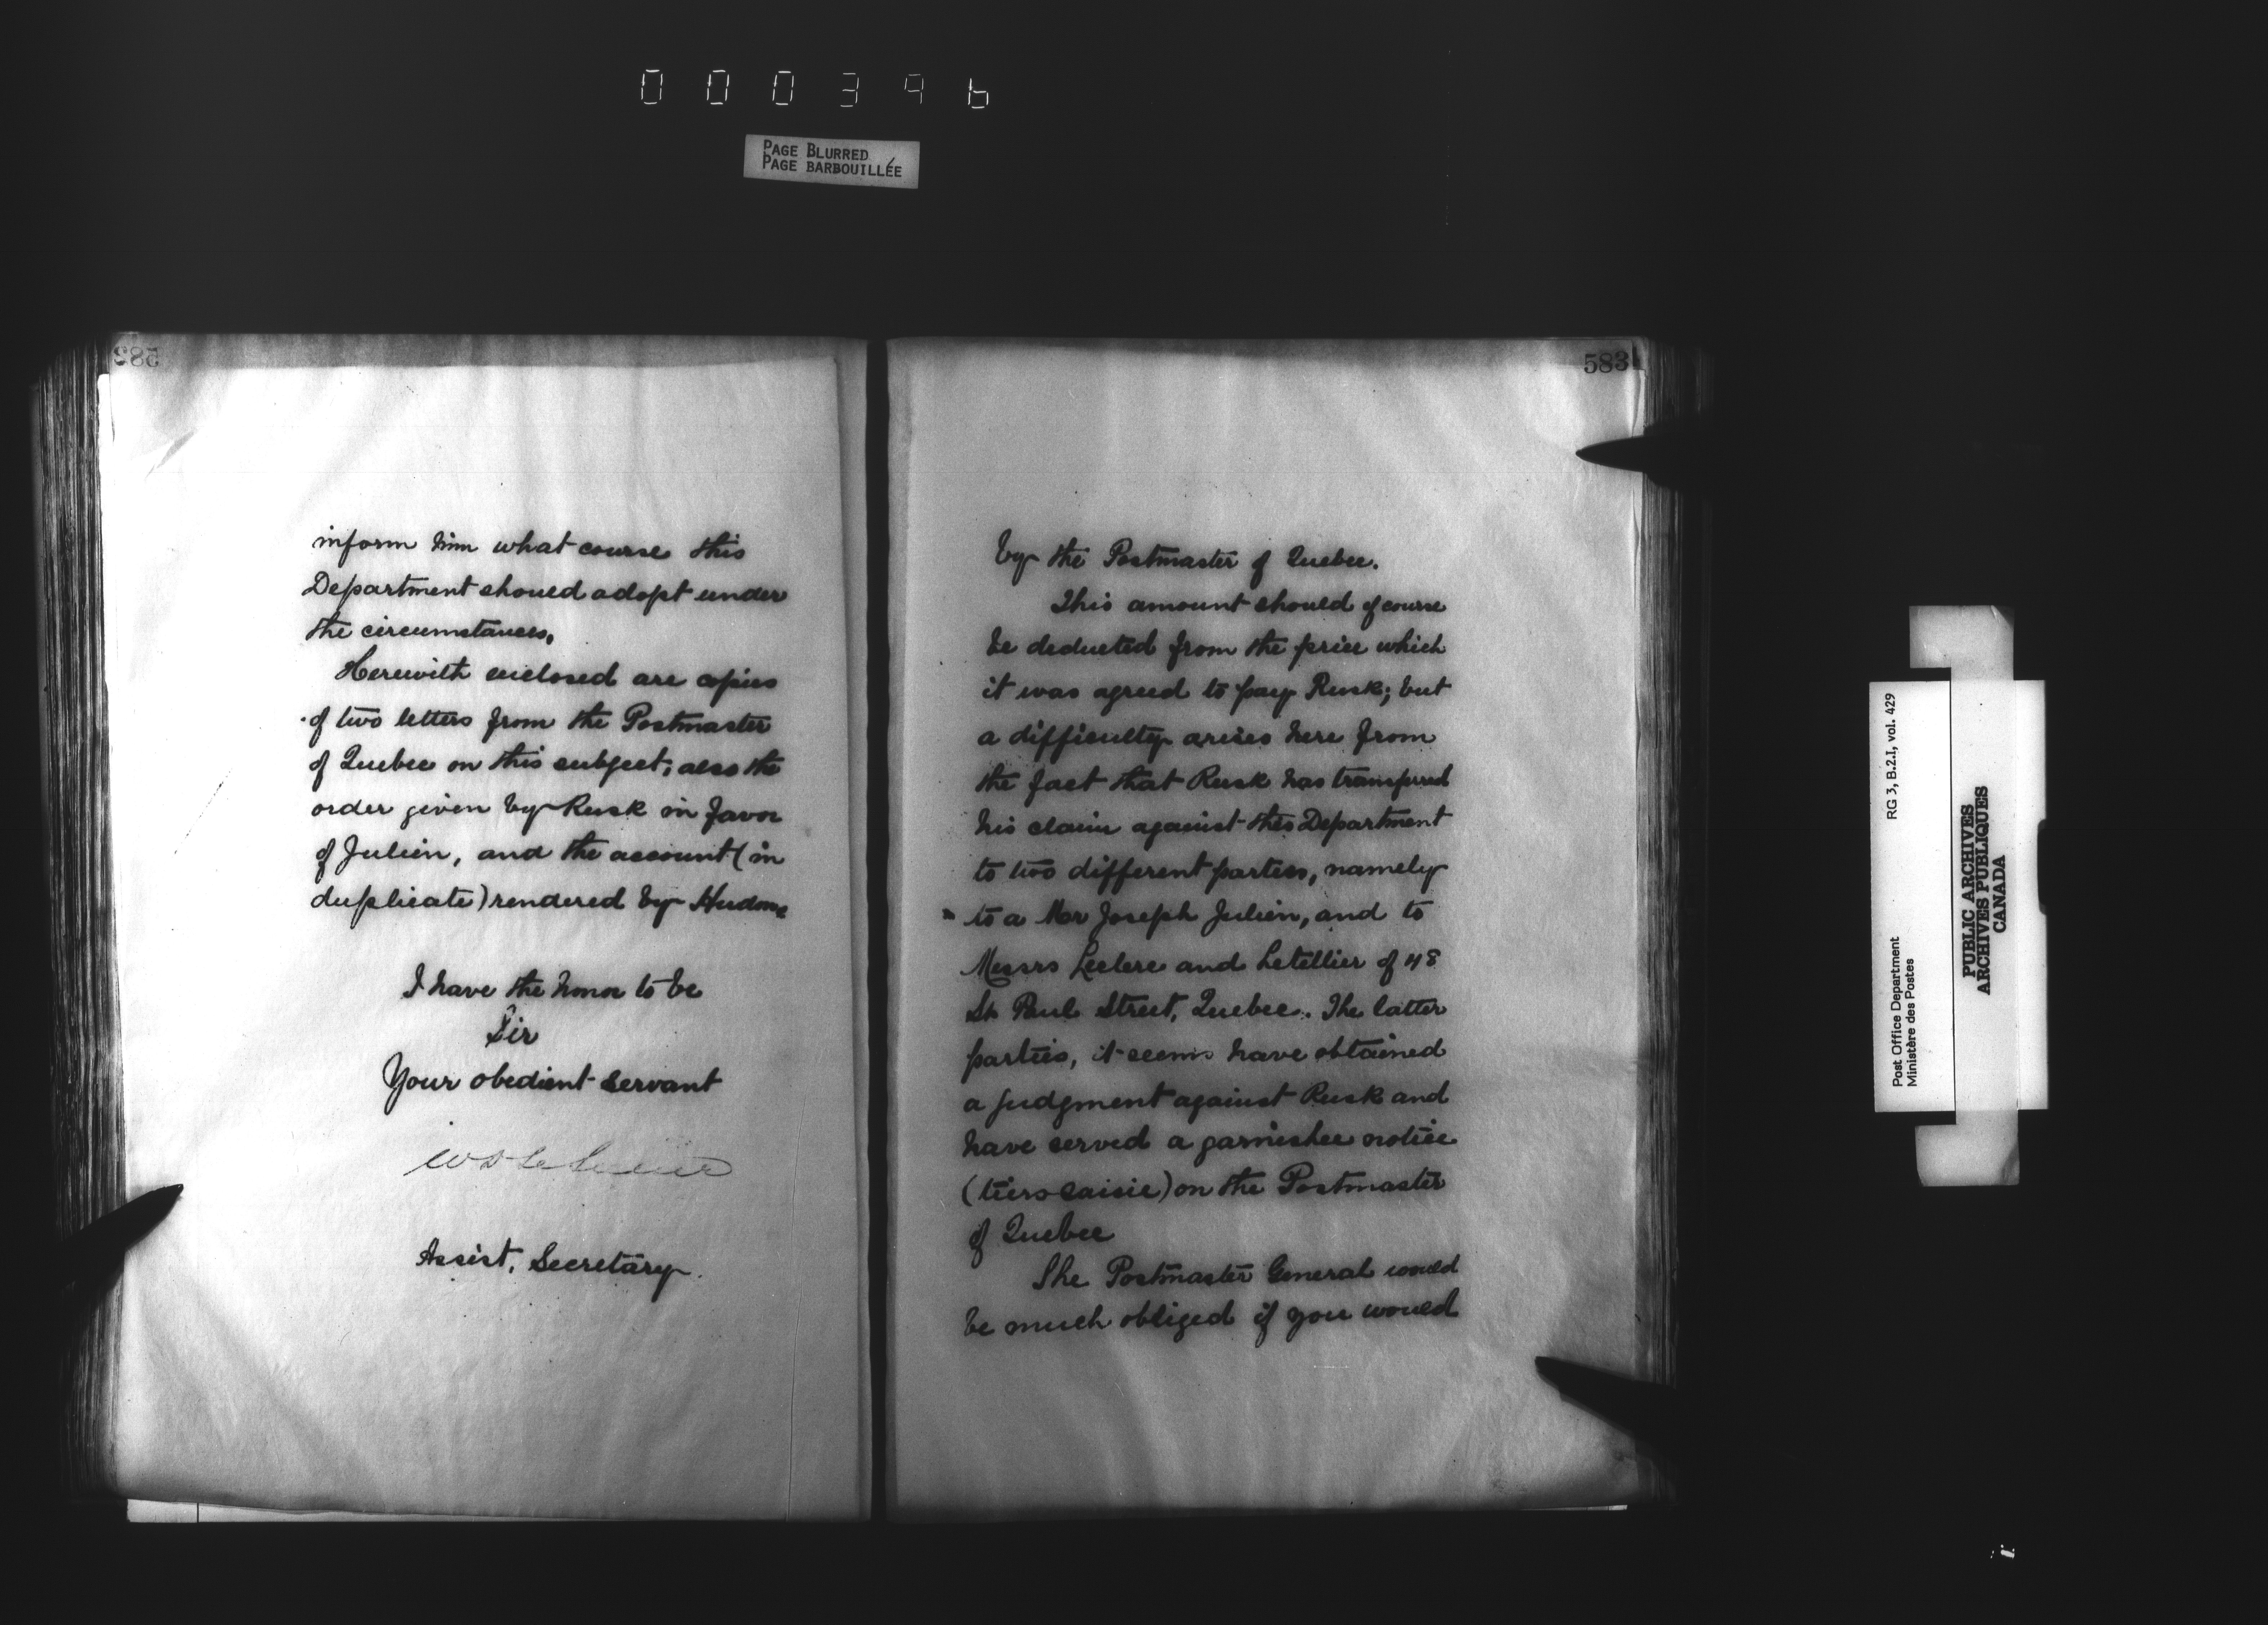 000396
PAGE BLURRED
PAGE BARBOUILLÉE
583
inform him what course this
Department should adopt under
the circumstances.
Herewith enclosed are copies
of two letters from the Postmaster
of Quebec on this subject; also the
order given by Rusk in favor
of Julien, and the account (in
duplicate) rendered by Hudon.
I have the honor to be
Sir
Your obedient servant
Assist. Secretary.
583
by the Postmaster of Quebec.
This amount should of course
be deducted from the price which
it was agreed to pay Rusk; but
a difficulty arises here from
the fact that Rusk has transferred
his claim against this Department
to two different parties, namely
to a Mr Joseph Julien, and to
Messrs Leclerc and Letellier of 48
St. Paul Street, Quebec. The latter
parties, it seems have obtained
a judgment against Rusk and
have served a garnishee notice
(tiers saisie) on the Postmaster
of Quebec
The Postmaster General would
be much obliged if you would
Post Office Department
Ministère des Postes
RG 3, B.2.1, vol. 429
PUBLIC ARCHIVES
ARCHIVES PUBLIQUES
CANADA